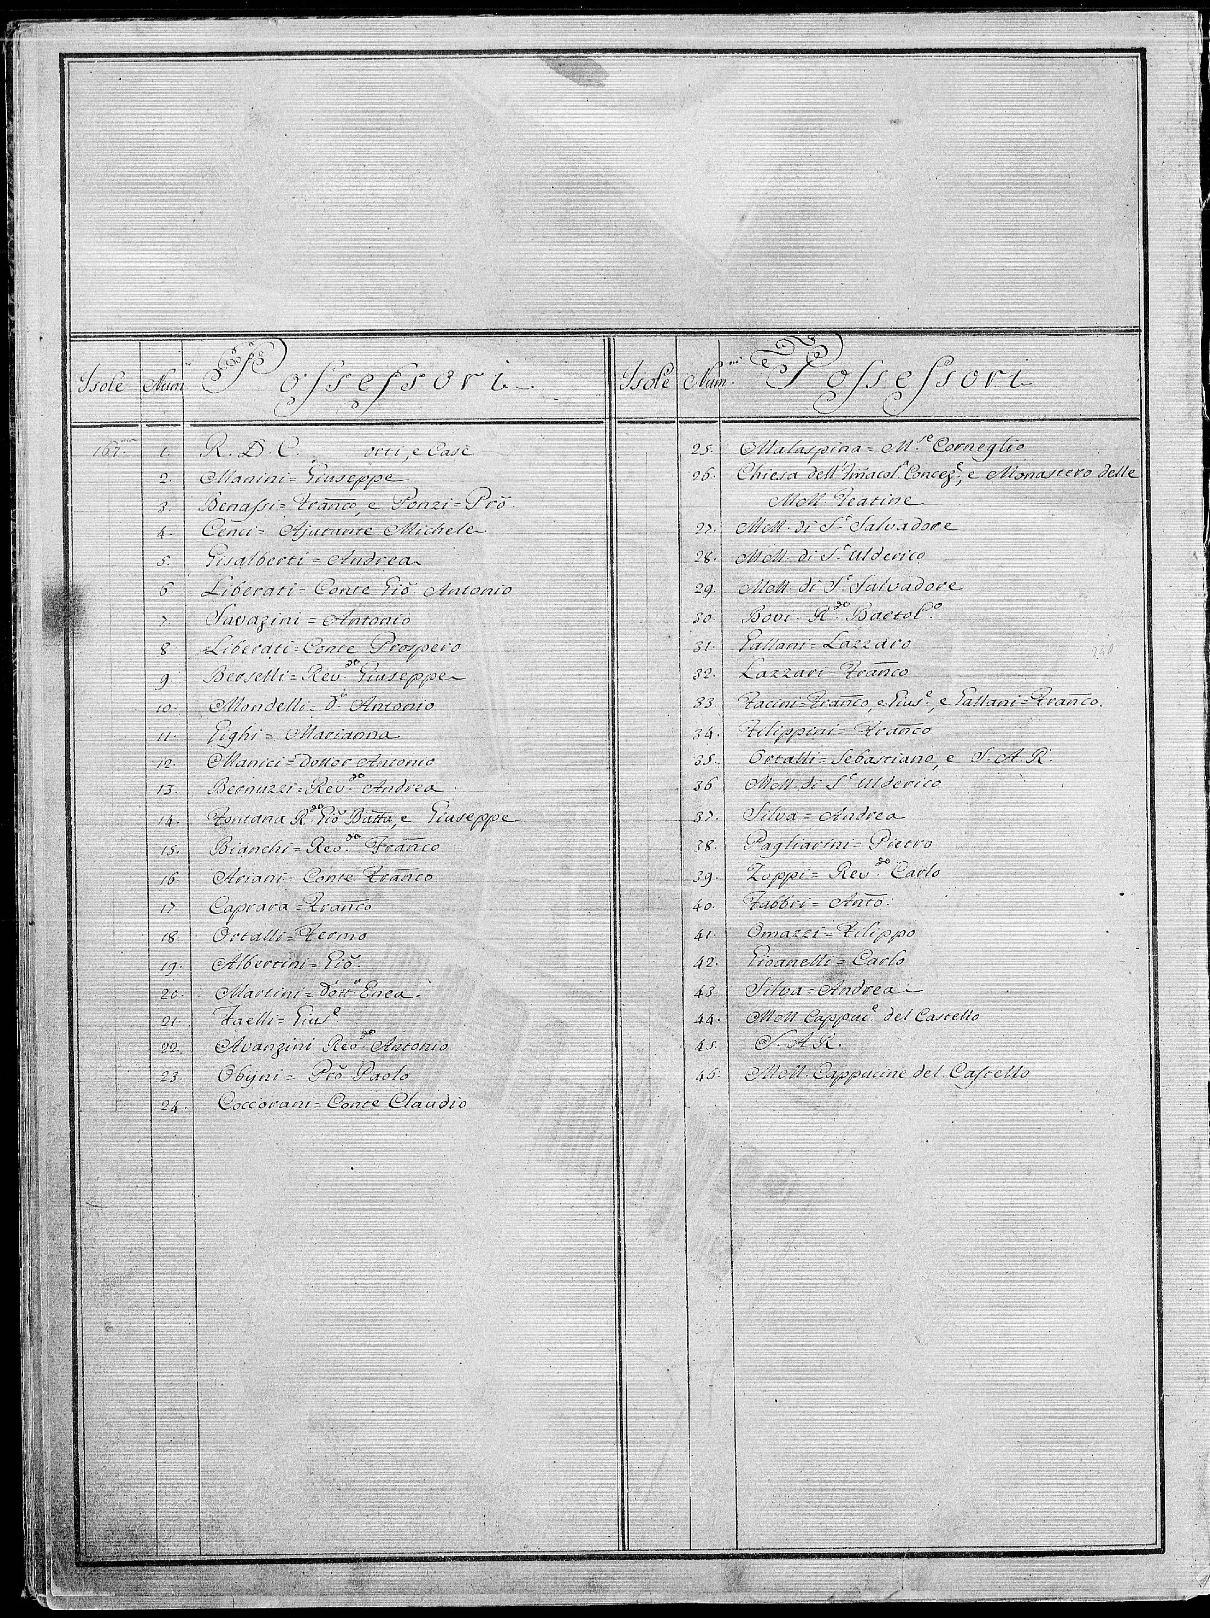 Isole Num.ri Possessori
167. 1. R. D. C. orti, e Case
2. Manini = Giuseppe
3. Benassi = Franco, e Ponzi = Pro
4. Cenci = Ajutante Michele
5. Gisalberti = Andrea
6 Liberati = Conte Gio Antonio
7. Savazini = Antonio
8 Liberati = Conte Prospero
9. Berselli = Rev.do Giuseppe
10. Mondelli = D.r Antonio
11. Gighi = Marianna
12. Manici = Dottor Antonio
13. Bernuzzi = Rev.do Andrea
14. Fontana R.do Gio Batta, e Giuseppe
15. Bianchi = Rev.do Franco
16 Ariani = Conte Franco
17 Caprara = Franco
18 Ortalli = Fermo
19. Albertini = Gio.
20. Martini = Dott.r Enea
21. Faelli = Gius.e
22. Avanzini Rev.do Antonio
23. Obijni = Pro Paolo
24. Coccorani = Conte Claudio
Isole Num.ri Possessori
25. Malaspina = M.se Corneglio
26. Chiesa dell'Imacol.a Concez.e, e Monastero delle
MM Teatine
27. MM di S.t Salvadore
28. MM di S.t Ulderico
29. MM di S.t Salvadore
30. Bovi = R.do Bartol.o
31. Gallani = Lazzaro
32. Lazzari = Franco
33. Facini = Franco, e Gius.e, e Gallani = Franco.
34. Filippini = Franco
35. Ortalli = Sebastiano, e S. A. R.
36 MM di S.t Ulderico
37. Silva = Andrea
38. Pagliarini = Pietro
39. Zoppi = Rev.do Carlo
40. Fabbri = Anto.
41. Omazzi = Filippo
42. Gioanelli = Carlo
43. Silva = Andrea
44. MM Cappuc.e del Castello
45. S. A. R.
46. MM Cappucine del Castello